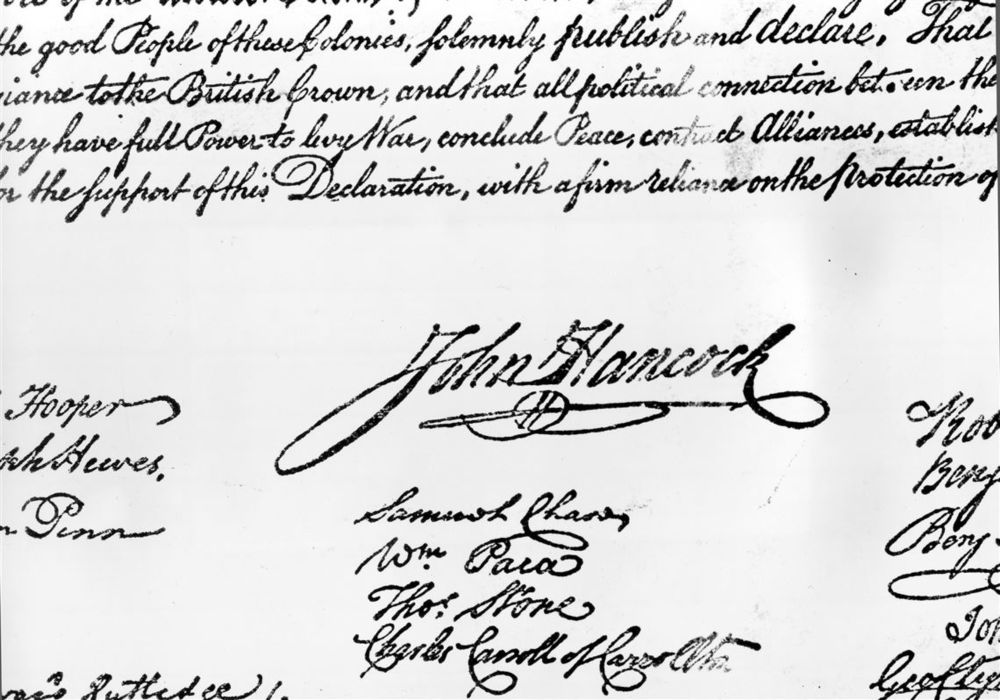 the good People of these Colonies, solemnly publish and declare, That
iance to the British Crown, and that all political connection bet een the
they have full Power to levy War, conclude Peace, contract Alliances, establish
or the support of this Declaration, with a firm reliance on the protection of
John Hancock
Hooper
ph Hewes,
n Penn
Samuel Chase
Wm. Paca
Thos. Stone
Charles Carroll of Carrollton
Rob
Benj
Benj
Joh
Geo. Cly
Rutledge